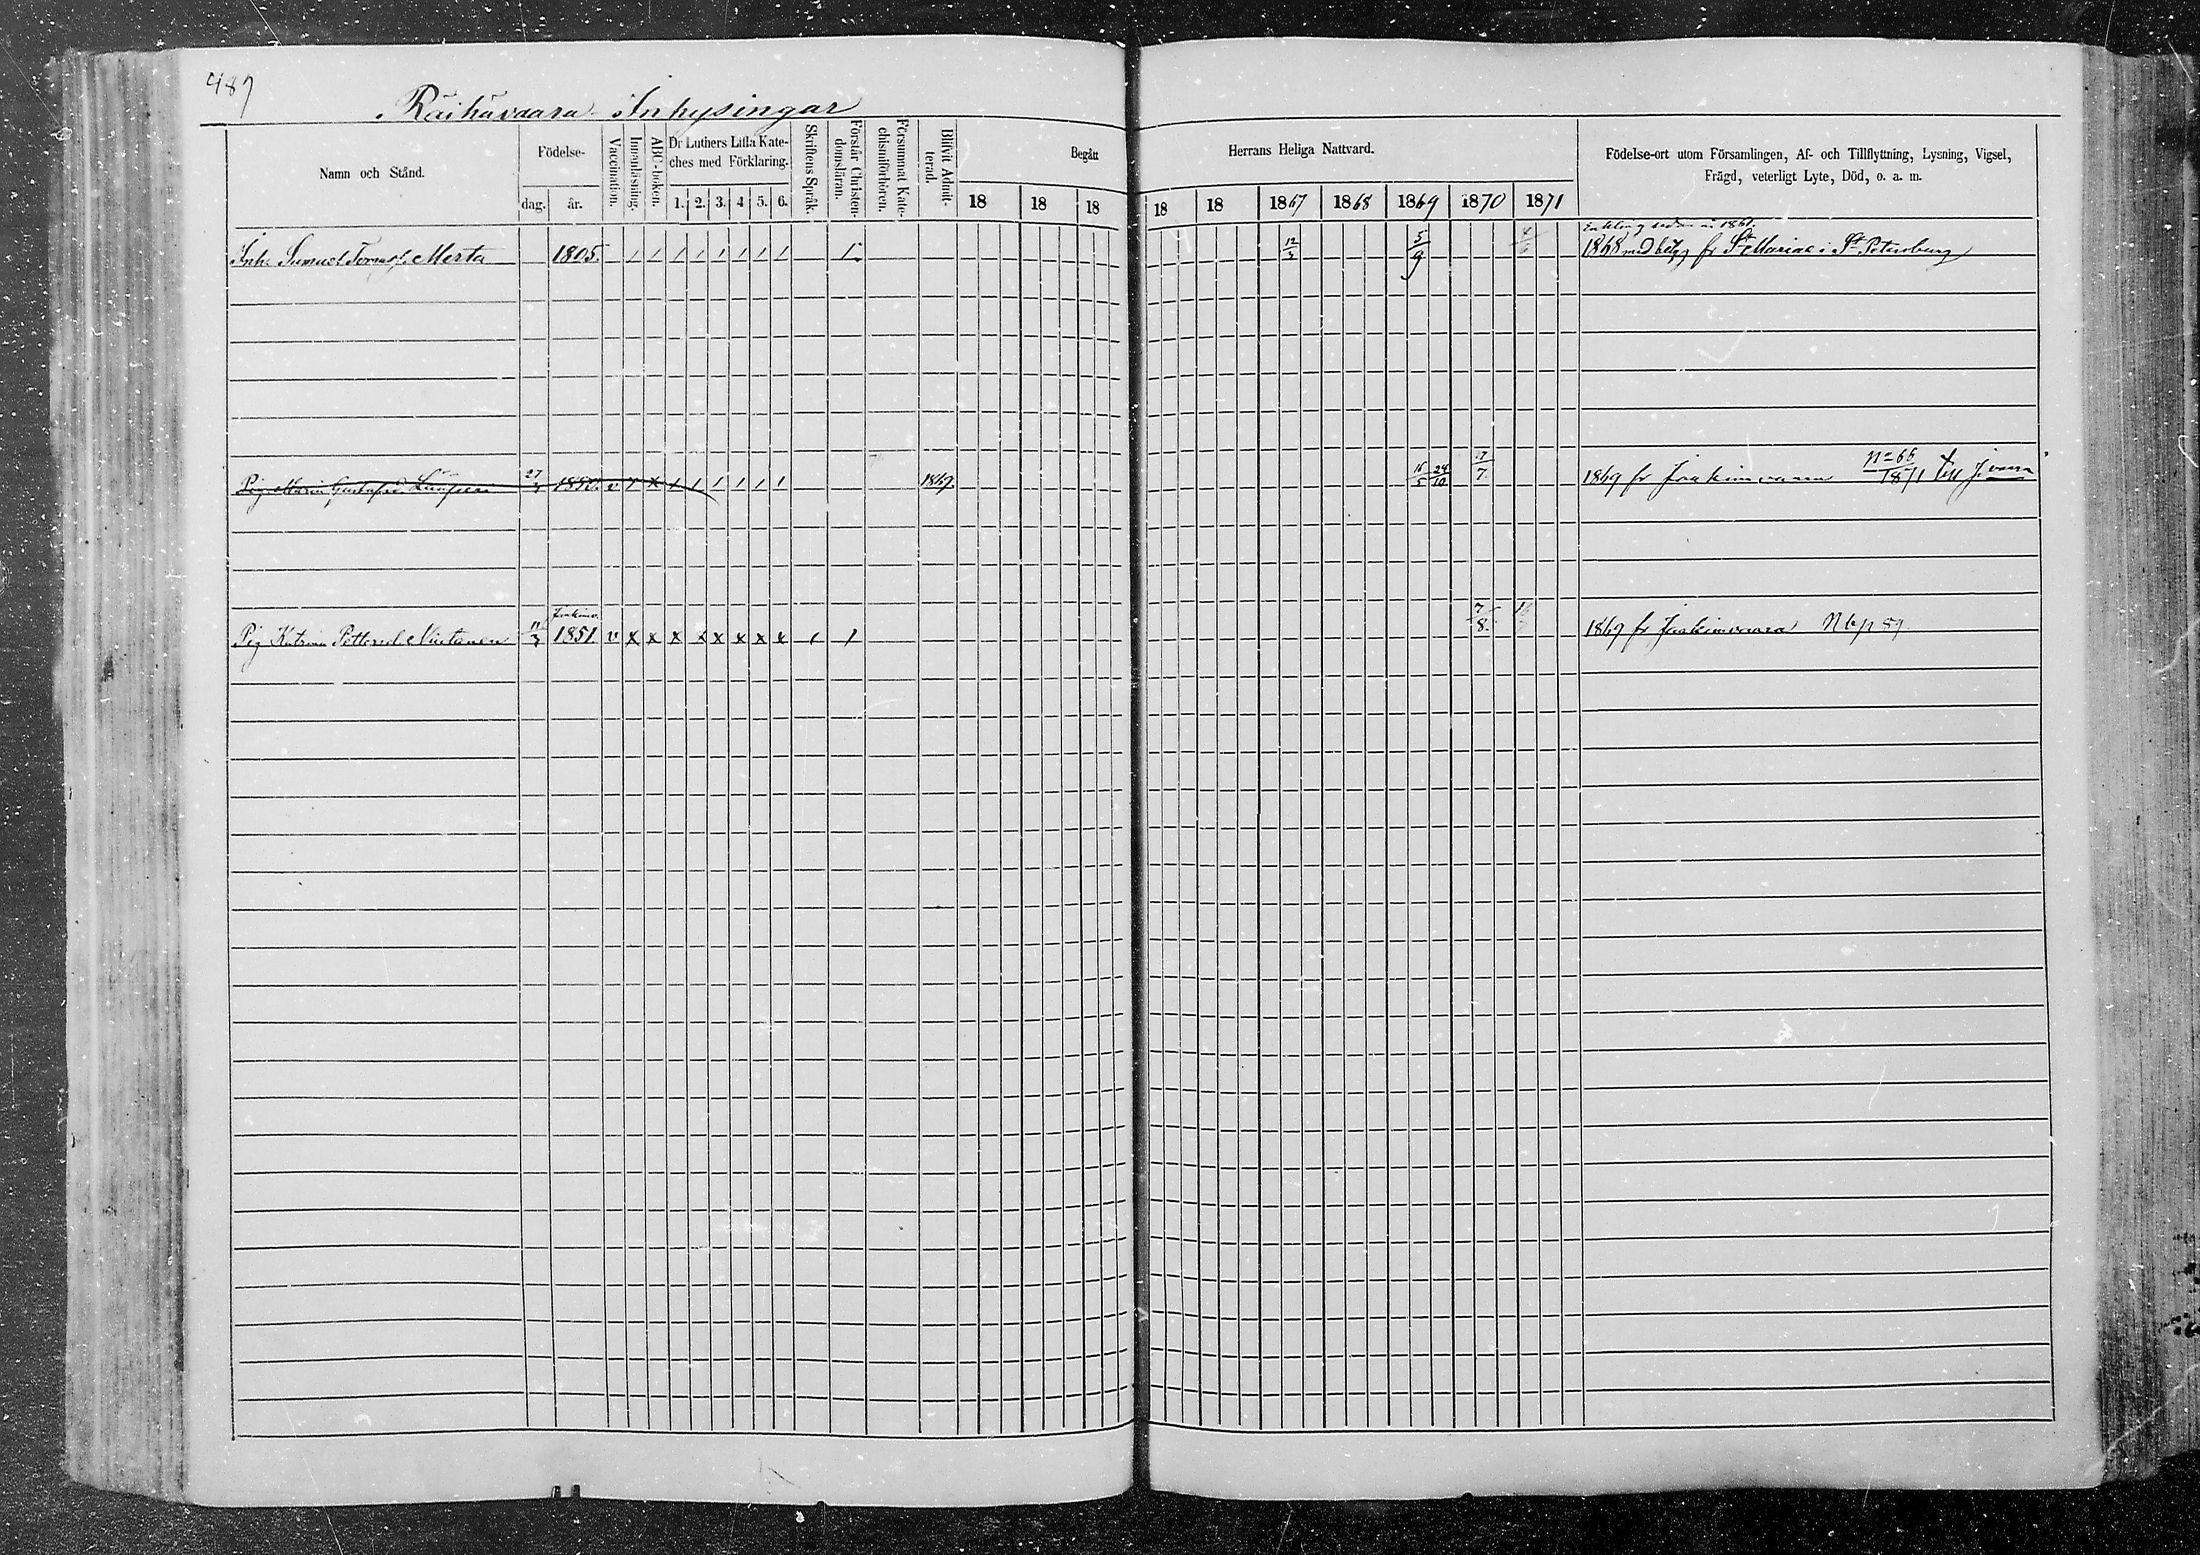 487
Räihävaara Inhysingar
Namn och Stånd.
Födelse-
dag. år.
Vaccination.
Innanläsning.
ABC-boken.
Dr Luthers Lilla Kate-
ches med Förklaring.
1. 2. 3. 4 5. 6.
Skriftens Språk.
Förstår Christen-
domsläran.
Försummat Kate-
chismiförhören.
Blifvit Admit-
terad.
Begått
Herrans Heliga Nattvard.
18 18 18 18 18 1867 1868 1869 1870 1871
Födelse-ort utom Församlingen, Af- och Tillflyttning, Lysning, Vigsel,
Frägd, veterligt Lyte, Död, o. a. m.
Enkling sedan 1861.
Inh. Samuel Tomasf. Merta 1805. 1 1 1 1 1 1 1 1 1 12/3 5/9 1868 med betyg fr St Mariae i St Petersburg
Pig Maria Gustafsd 27/3 1850. v 1 1 1 1 1869. 15/5 24/10 17/7. 1869 fr Joakimvaara n=66/1871 till Jvaara
Joakimv.
Pig Katrina Pettersd. Miettinen 11/3 1851. v x x x x x x x x 1 1 7/8. 1869 fr Joakimvaara Nb p 89.